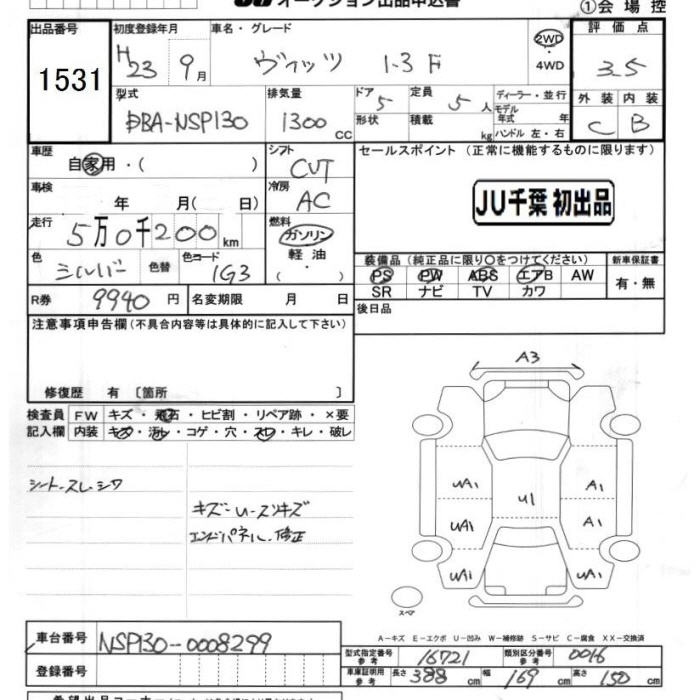 オークション出品申込書
①会場控
出品番号
1531
初度登録年月
H23 9月
車名・グレード
ヴィッツ 1.3 F
2WD
・
4WD
評価点
3.5
型式
DBA-NSP130
排気量
1300 CC
ドア 5
形状
定員 5 人
積載 kg
ディーラー・並行
モデル
年式 年
ハンドル 左・右
外装 内装
C B
車歴
自家用・( )
シフト
CVT
セールスポイント (正常に機能するものに限ります)
JU千葉 初出品
車検
年 月( 日)
冷房
AC
走行
5万0千200km
燃料
ガソリン
軽油
( ・ )
色
シルバー
色替
色コード
1G3
装備品 (純正品に限り○をつけてください)
PS PW ABS エアB AW
SR ナビ TV カワ
新車保証書
有・無
R券 9940 円
名変期限 月 日
後日品
注意事項申告欄(不具合内容等は具体的に記入して下さい)
修復歴 有 〔箇所 〕
検査員 FW キズ・飛石・ヒビ割・リペア跡・×要
記入欄 内装 キズ・汚レ・コゲ・穴・スレ・キレ・破レ
シートスレ・シワ
キズ・U・スリキズ
エンドパネル修正
A3
UA1 A1
U1
UA1 A1
UA1 UA1
スペア
A-キズ E-エクボ U-凹み W-補修跡 S-サビ C-腐食 XX-交換済
車台番号 NSP130-0008299
登録番号
型式指定番号
参考
16721
類別区分番号
参考
0016
車庫証明用
参考
長さ 388 cm 幅 169 cm 高さ 150 cm